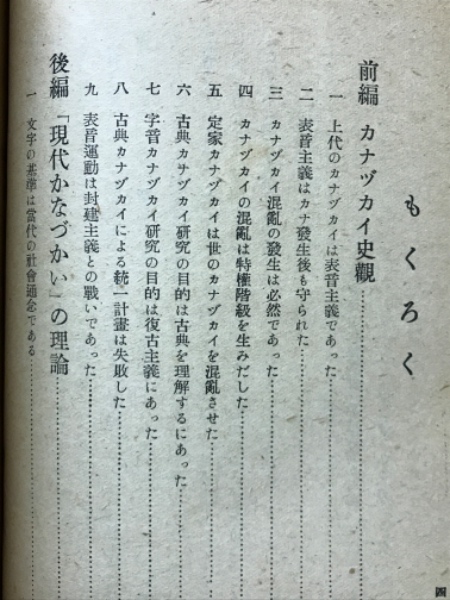 もくろく
前編 カナヅカイ史觀
一 上代のカナヅカイは表音主義であった
二 表音主義はカナ發生後も守られた
三 カナヅカイ混亂の發生は必然であった
四 カナヅカイの混亂は特權階級を生みだした
五 定家カナヅカイは世のカナヅカイを混亂させた
六 古典カナヅカイ研究の目的は古典を理解するにあった
七 字音カナヅカイ研究の目的は復古主義にあった
八 古典カナヅカイによる統一計畫は失敗した
九 表音運動は封建主義との戰いであった
後編 「現代かなづかい」の理論
一 文字の基準は當代の社會通念である
四